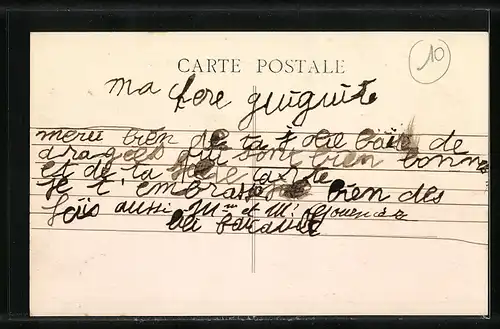 CARTE POSTALE
10
ma chere guiguite
merci bien de ta jolie boite de
dragées qui sont bien bonne
et de ta jolie carte
je t'embrasse bien des
fois aussi Mme et M.